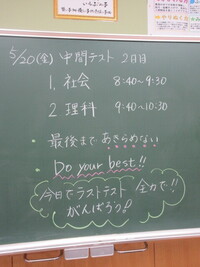 5/20(金) 中間テスト 2日目
1. 社会 8:40~9:30
2 理科 9:40~10:30
• 最後まであきらめない
• Do your best!!
今日でラストテスト 全力で!!
がんばろう!